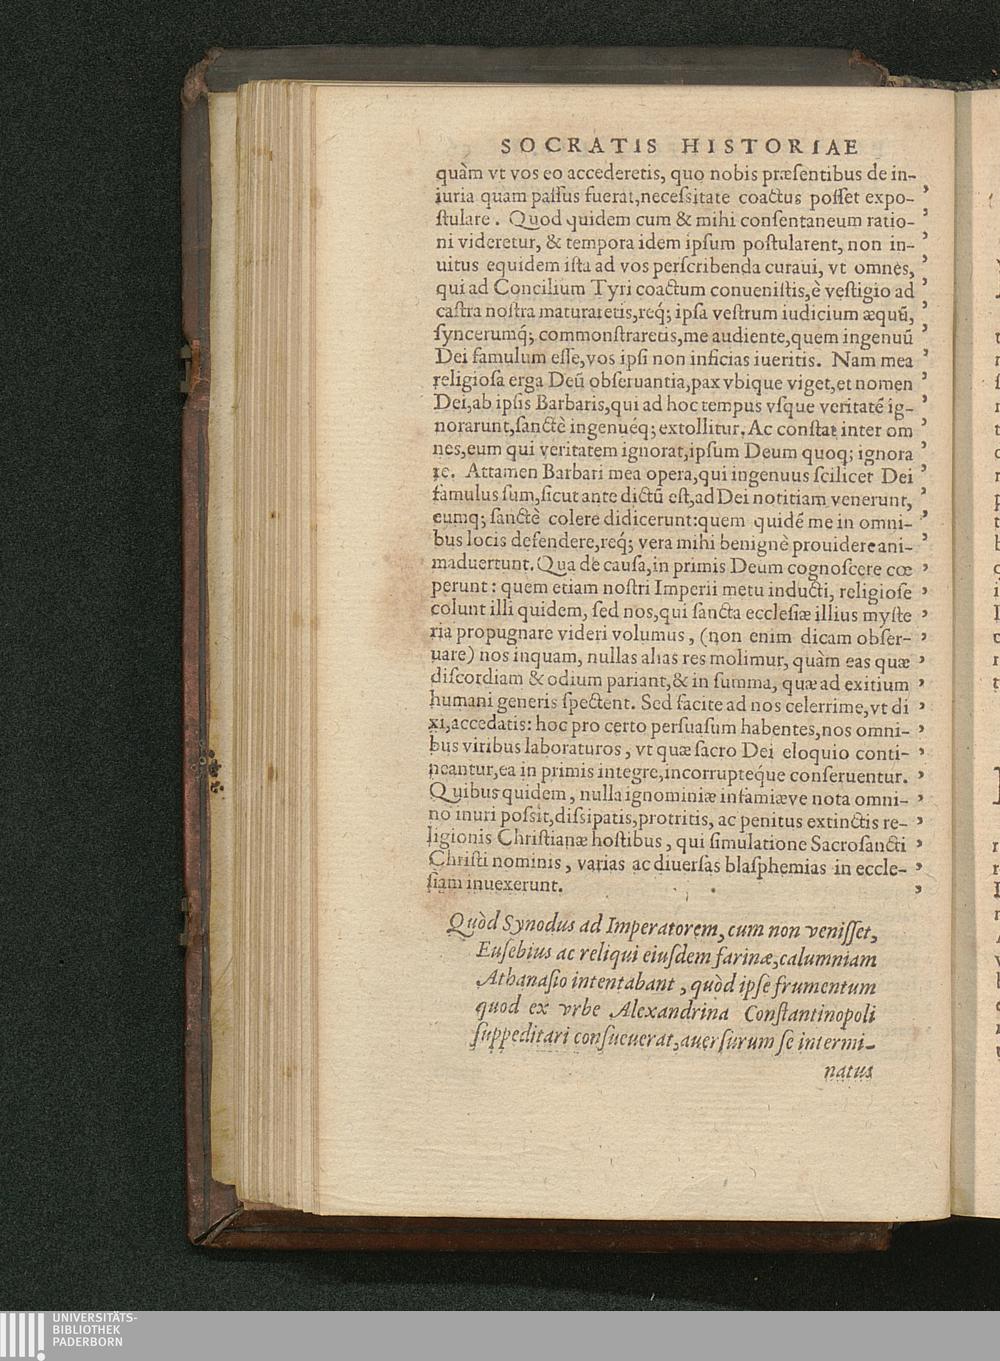 SOCRATIS HISTORIAE
quàm vt vos eo accederetis, quo nobis præſentibus de in-
iuria quam paſſus fuerat,neceſsitate coactus poſſet expo- ,
ſtulare . Quod quidem cum & mihi conſentaneum ratio- ,
ni videretur, & tempora idem ipſum poſtularent, non in- ,
uitus equidem iſta ad vos perſcribenda curaui, vt omnes, ,
qui ad Concilium Tyri coactum conueniſtis,è veſtigio ad ,
caſtra noſtra maturaretis,req́; ipſa veſtrum iudicium æquũ, ,
ſyncerumq́; commonſtraretis,me audiente,quem ingenuũ ,
Dei famulum eſſe,vos ipſi non inficias iueritis. Nam mea ,
religioſa erga Deũ obſeruantia,pax vbique viget,et nomen ,
Dei,ab ipſis Barbaris,qui ad hoc tempus vſque veritatẽ ig- ,
norarunt,ſanctè ingenuéq; extollitur. Ac conſtat inter om ,
nes,eum qui veritatem ignorat,ipſum Deum quoq; ignora ,
re. Attamen Barbari mea opera,qui ingenuus ſcilicet Dei ,
famulus ſum,ſicut ante dictũ eſt,ad Dei notitiam venerunt, ,
eumq; ſanctè colere didicerunt:quem quidẽ me in omni- ,
bus locis defendere,req́; vera mihi benignè prouidere ani- ,
maduertunt. Qua de cauſa,in primis Deum cognoſcere cœ ,
perunt : quem etiam noſtri Imperii metu inducti, religioſe ,
colunt illi quidem, ſed nos,qui ſancta eccleſiæ illius myſte ,
ria propugnare videri volumus , (non enim dicam obſer- ,
uare) nos inquam, nullas alias res molimur, quàm eas quæ ,
diſcordiam & odium pariant,& in ſumma, quæ ad exitium ,
humani generis ſpectent. Sed facite ad nos celerrime,vt di ,
xi,accedatis: hoc pro certo perſuaſum habentes,nos omni- ,
bus viribus laboraturos , vt quæ ſacro Dei eloquio conti- ,
neantur,ea in primis integre,incorrupteq́ue conſeruentur. ,
Quibus quidem , nulla ignominiæ infamiæve nota omni- ,
no inuri poſsit,diſsipatis,protritis, ac penitus extinctis re- ,
ligionis Chriſtianæ hoſtibus , qui ſimulatione Sacroſancti ,
Chriſti nominis , varias ac diuerſas blaſphemias in eccle- ,
ſiam inuexerunt. ,
Quòd Synodus ad Imperatorem, cum non veniſſet,
Euſebius ac reliqui eiuſdem farinæ,calumniam
Athanaſio intentabant , quòd ipſe frumentum
quod ex vrbe Alexandrina Conſtantinopoli
ſuppeditari conſueuerat,auerſurum ſe intermi-
natus
UNIVERSITÄTS-
BIBLIOTHEK
PADERBORN